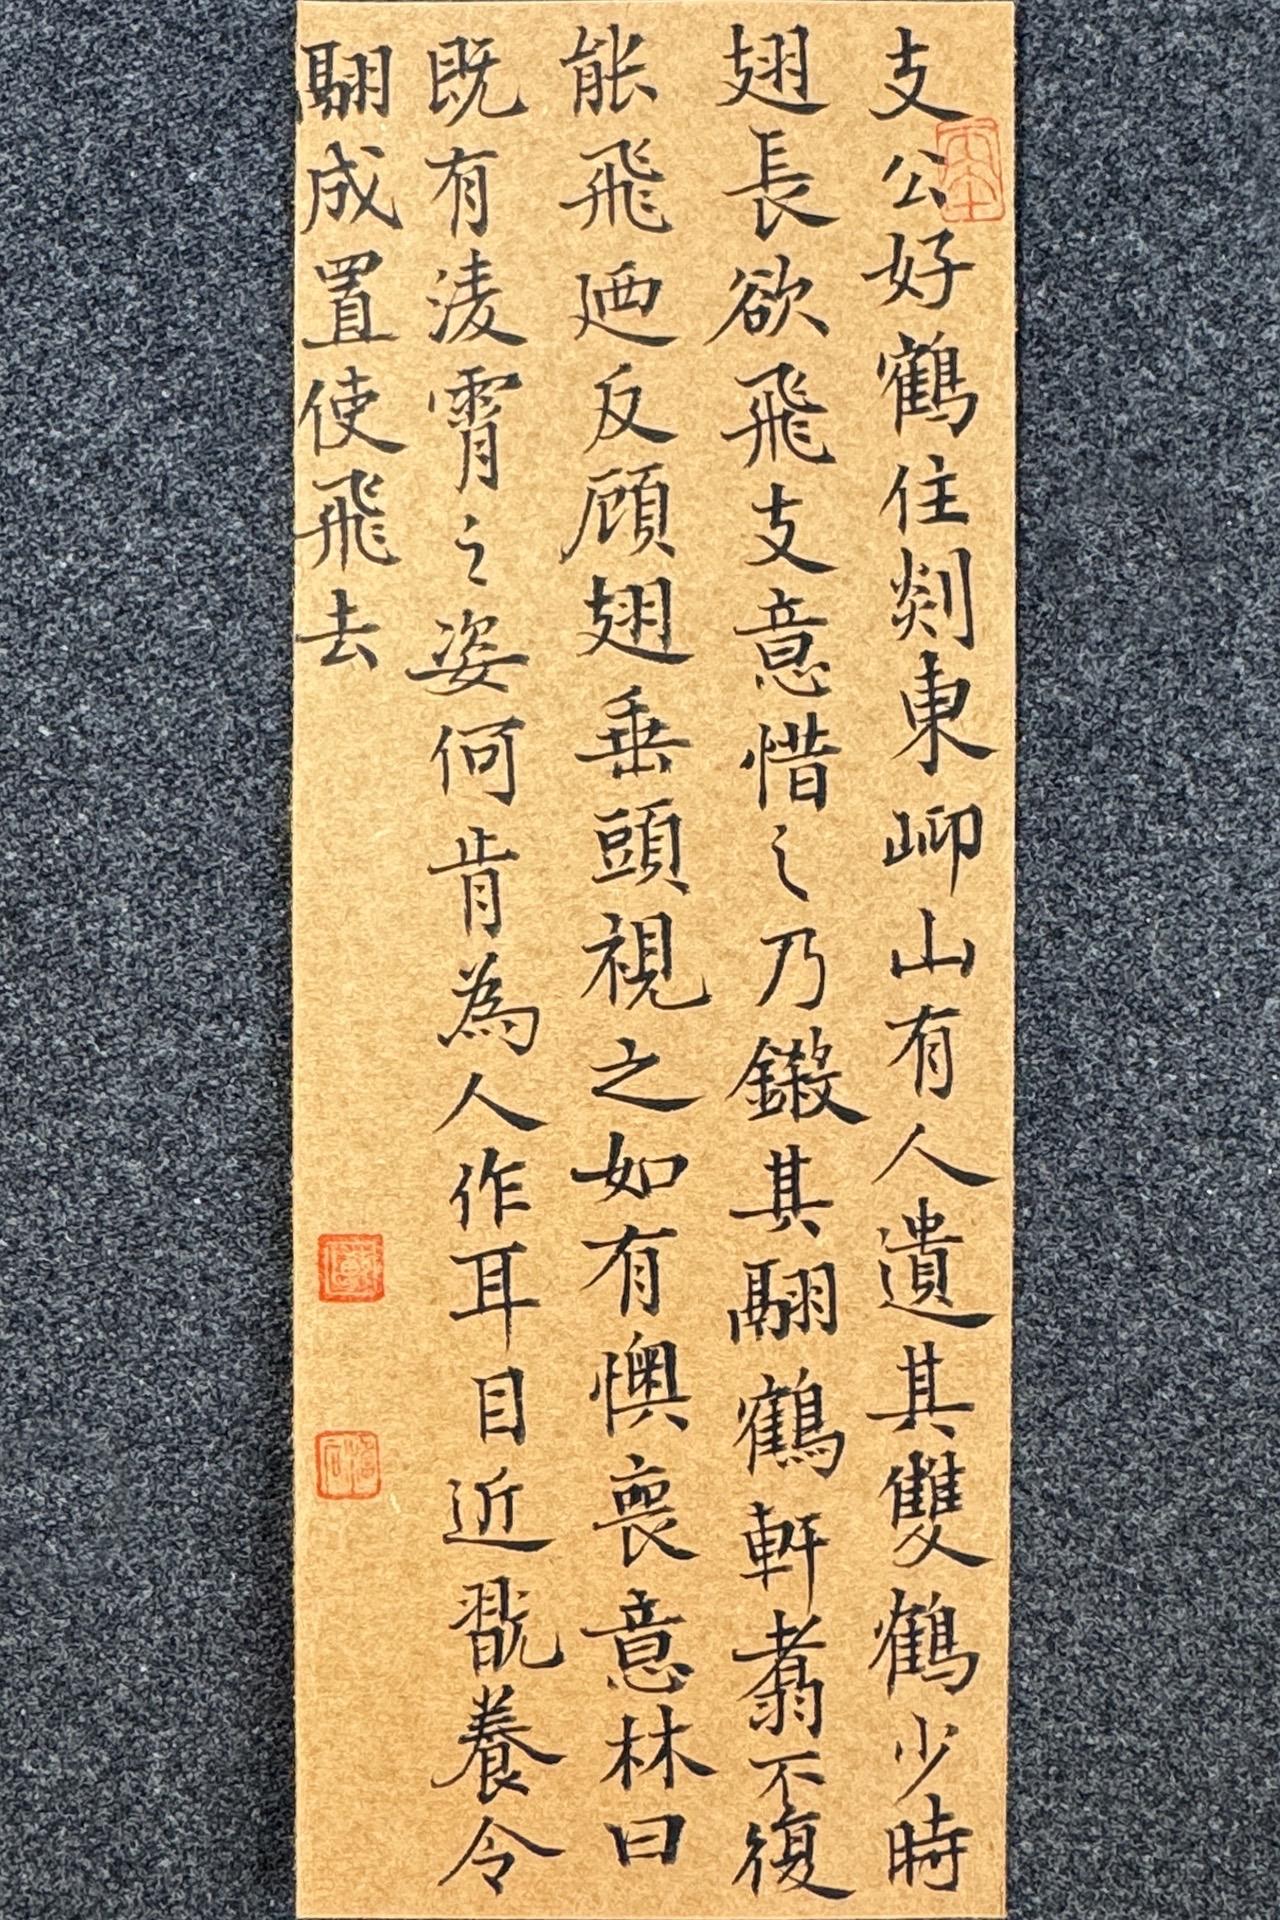 支公好鶴住剡東岬山有人遺其雙鶴少時
翅長欲飛支意惜之乃鎩其翮鶴軒翥不復
能飛廼反顧翅垂頭視之如有懊喪意林曰
既有淩霄之姿何肯為人作耳目近翫養令
翮成置使飛去